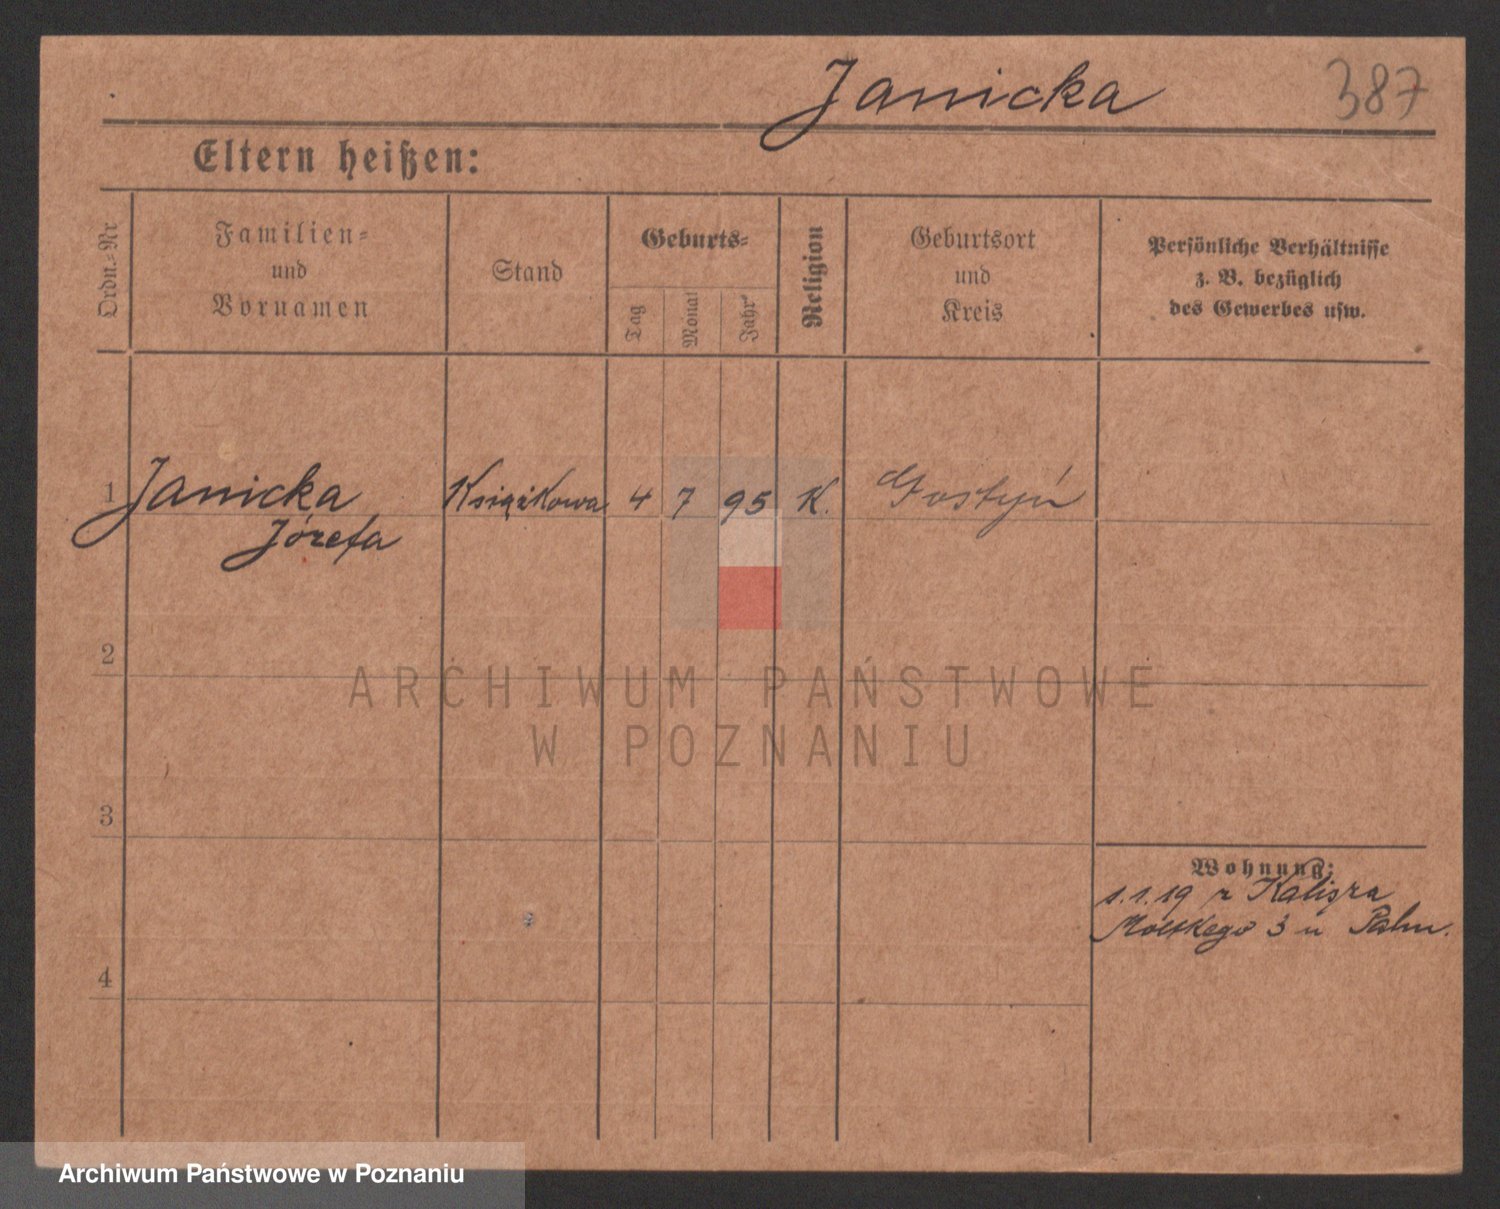 Janicka 387
Eltern heißen:
Ordn.-Nr
Familien-
und
Vornamen
Stand
Geburts-
Tag
Monat
Jahr
Religion
Geburtsort
und
Kreis
Persönliche Verhältnisse
z. B. bezüglich
des Gewerbes usw.
1 Janicka Książkowa 4 7 95 K. Gostyń
Józefa
2
3
4
Wohnung:
1.1.19 z Kalisza
Moltkego 3 u
ARCHIWUM PAŃSTWOWE
W POZNANIU
Archiwum Państwowe w Poznaniu